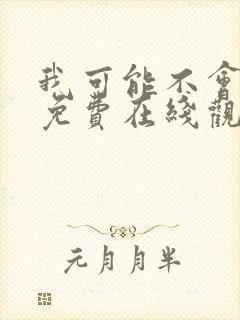 我可能不會
免費在綫觀
元月月半